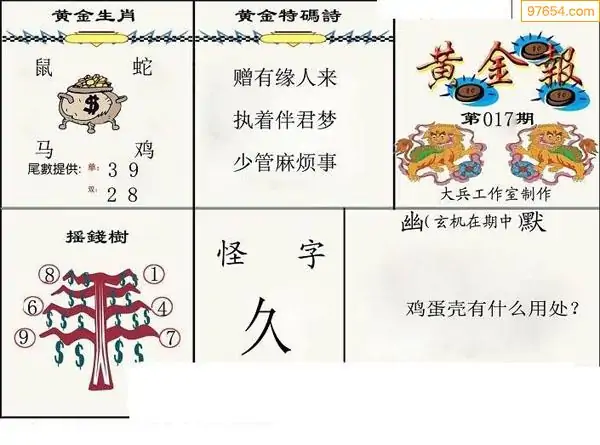 97654.com
黄金生肖
鼠 蛇
$
马 鸡
尾數提供: 单: 3 9
双: 2 8
黄金特碼詩
赠有缘人来
执着伴君梦
少管麻烦事
黄金報
第017期
大兵工作室制作
摇錢樹
⑧ ①
⑥ ④
⑨ ⑦
$ $ $ $ $ $ $ $ $ $
怪 字
久
幽(玄机在期中)默
鸡蛋壳有什么用处?